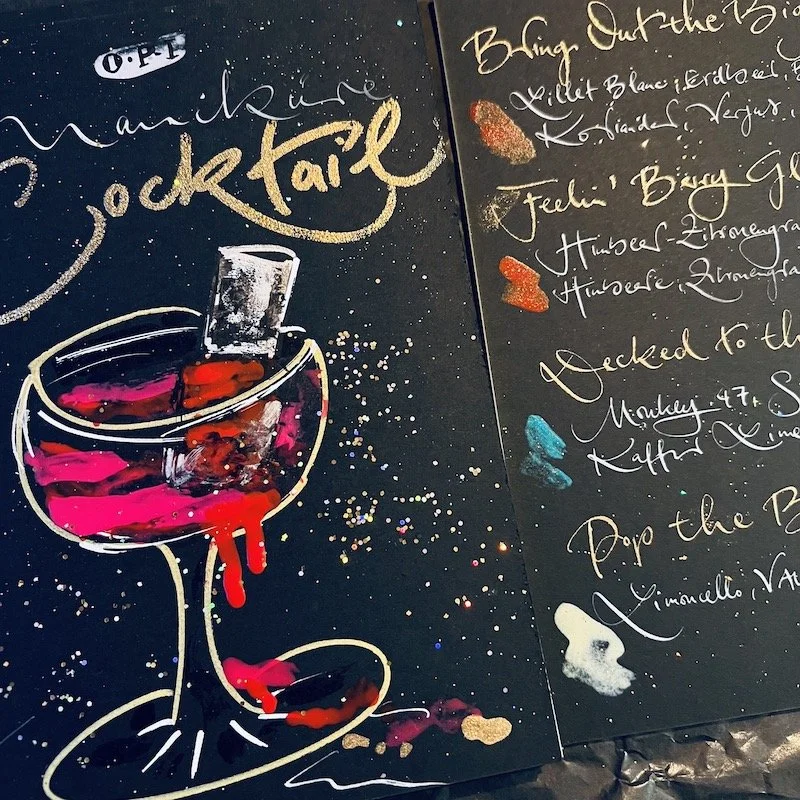 O·P·I
Maniküre
Cocktail
Bring Out the Big
Lillet Blanc, Erdbeer,
Koriander, Verjus,
Feelin' Berry Gl
Himbeer-Zitronengra
Himbeere, Zitronengra
Decked to th
Monkey 47, S
Kaffir Lime
Pop the B
Limoncello,